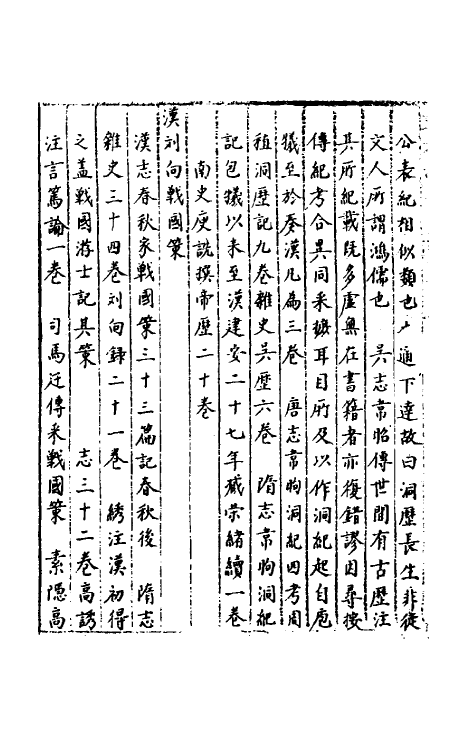 公表紀相似類也上通下達故曰洞歷長生非徒
文人所謂鴻儒也　吳志韋昭傳世間有古歷注
其所紀載既多虛無在書籍者亦復錯謬因尋按
傳紀考合異同采摭耳目所及以作洞紀起自庖
犧至於秦漢凡為三卷　唐志韋昭洞紀四卷周
樹洞歷記九卷雜史吳歷六卷　隋志韋昭洞紀
記包犧以來至漢建安二十七年臧榮緒續一卷
南史庾詵撰帝歷二十卷
漢劉向戰國策
漢志春秋家戰國策三十三篇記春秋後　隋志
雜史三十四卷劉向錄二十一卷　綉注漢初得
之蓋戰國游士記其策　志三十二卷高誘
注言篤論一卷　司馬迁傳采戰國策　素隱高